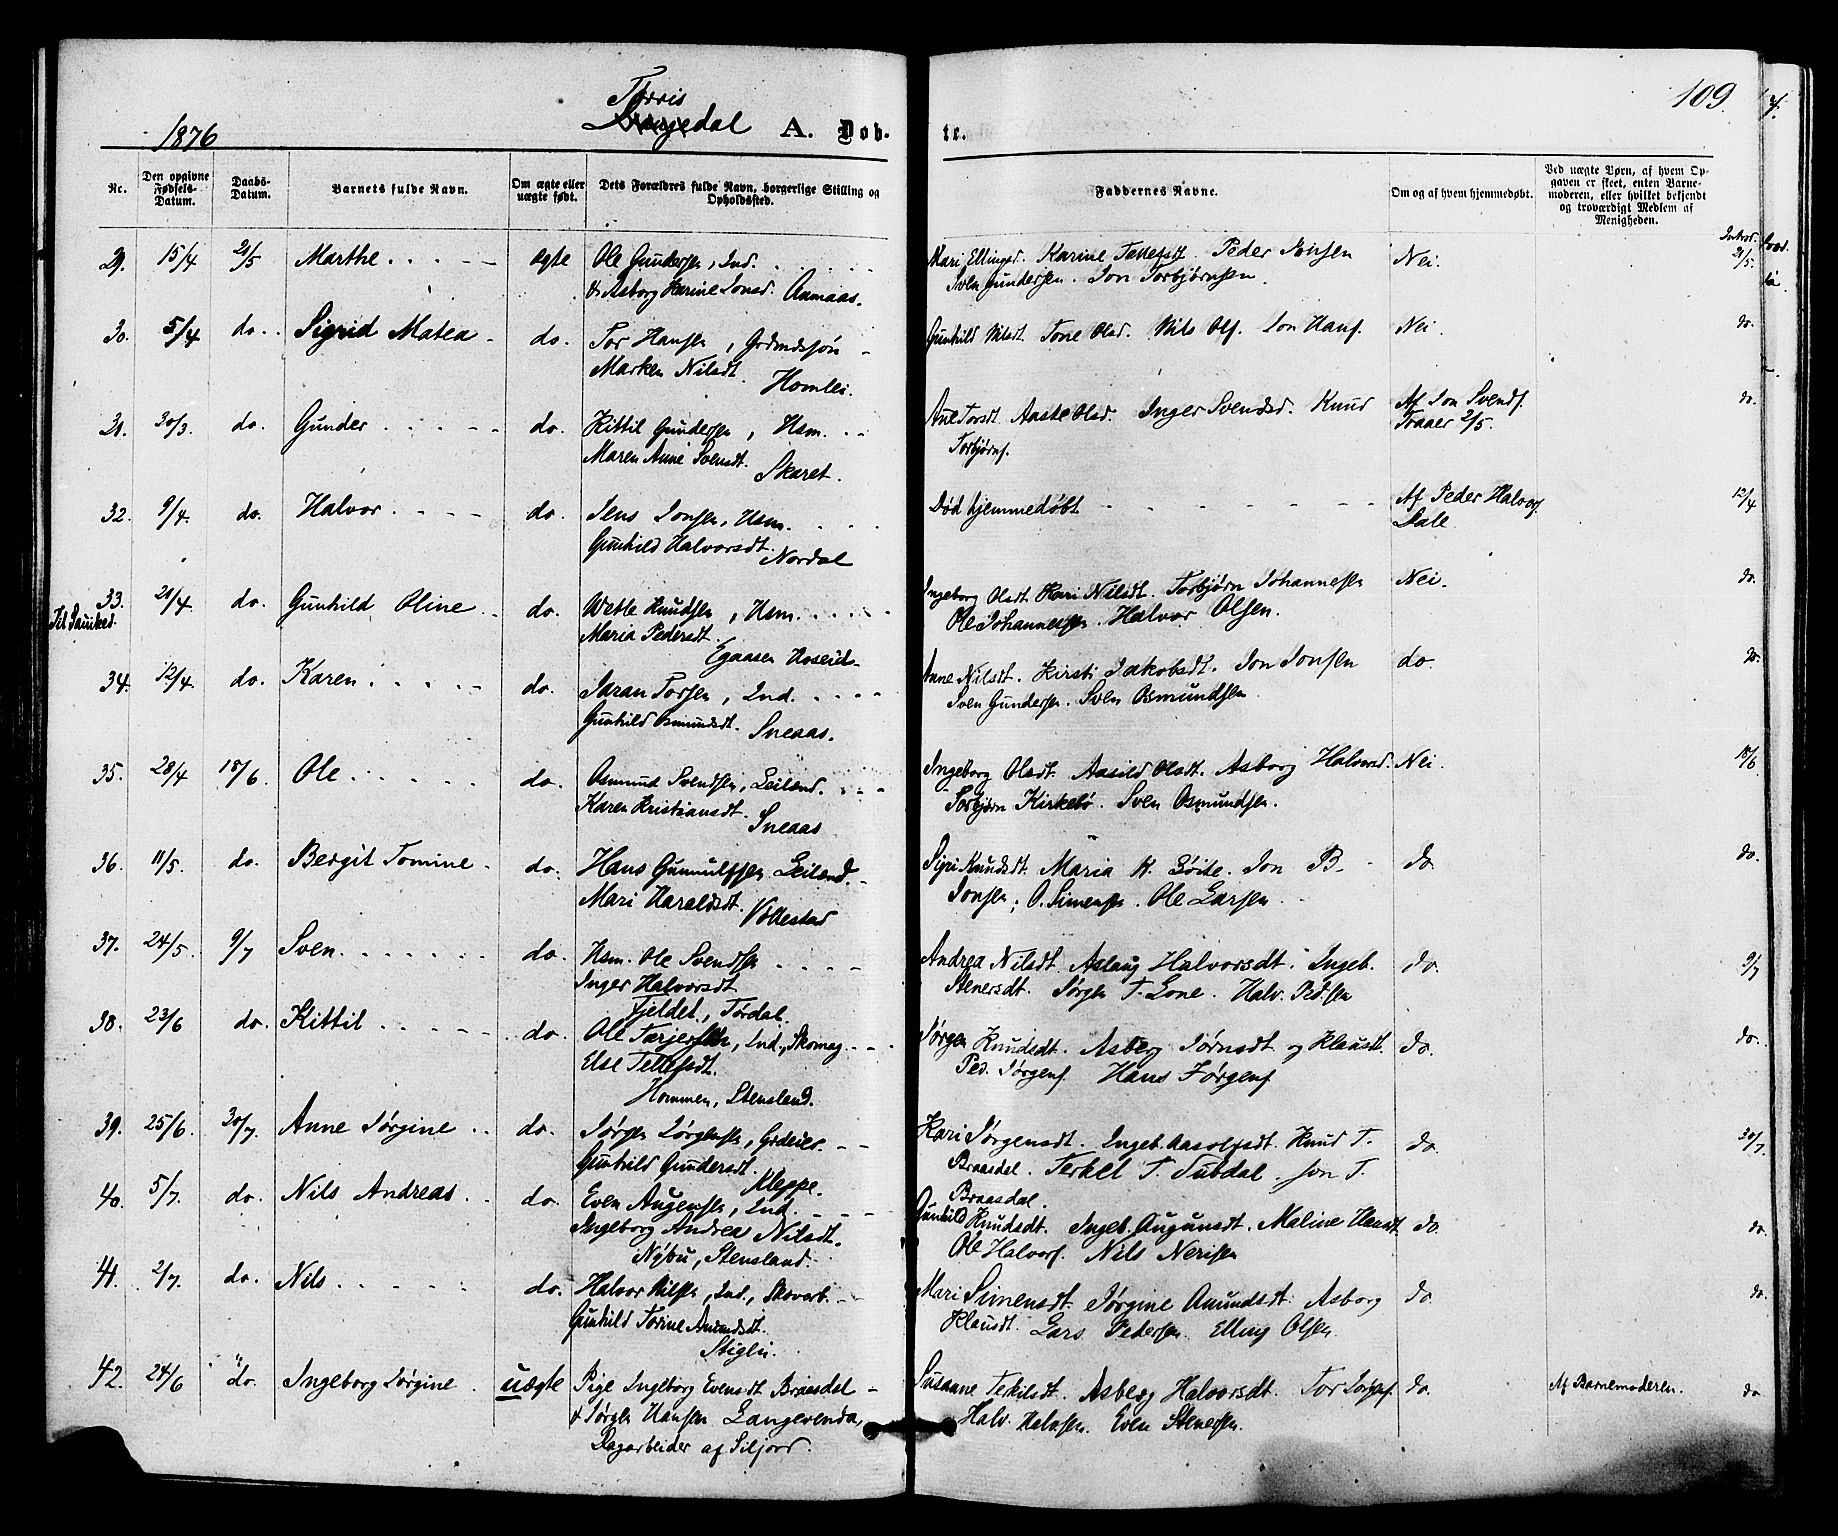 109
1876 Tørris
Drangedal A. Døb-
te.
Nr. Den opgivne Fødsels-Datum. Daabs-Datum. Barnets fulde Navn. Om ægte eller uægte født. Dets Forældres fulde Navn, borgerlige Stilling og Opholdssted. Faddernes Navne. Om og af hvem hjemmedøbt. Ved uægte Børn, af hvem Opgaven er skeet, enten Barnemoderen, eller hvilket bekjendt og troværdigt Medlem af Menigheden.
Introd.
29. 15/4 21/5 Marthe ægte Ole Gundersen, Ind. Kari Ellingsd. Karine Tellefsdt. Peder Jonsen Nei. 21/5
& Asborg Karine Jonsd. Aamaas. Sven Gundersen. Jon Torbjørnsen.
30. 5/4 do. Sigrid Matea do. Tor Hansen, Grdmdssøn Gunhild Nilsdt. Tone Olsd. Nils Ols. Jon Hans. Nei do.
Marken Nilsdt. Homlei.
31. 30/3 do. Gunder do. Kittil Gundersen, Hsm. Ane Torsdt. Aaste Olsd. Inger Svendsd. Knud Af Jon Svends. do.
Maren Anne Svensdt. Skaret. Torbjørns. Traaer 2/5.
32. 9/4 do. Halvor do. Jens Jonsen, Hsm. Død hjemmedøbt Af Peder Halvors. 12/4
Gunhild Halvorsdt. Nordal Dale
33. 21/4 do. Gunhild Oline do. Wetle Knudsen, Hsm. Ingeborg Olsdt. Kari Nilsdt. Torbjørn Johannesen Nei. do.
Til Saurkes. Maria Pedersdt. Egaasen Hoseid Ole Johannessen. Halvor Olsen.
34. 12/4 do. Karen do. Jaran Torsen, Ind. Anne Nilsdt. Kirsti Jakobsdt. Jon Jonsen do. do.
Gunhild Osmundsdt. Sneaas. Sven Gundersen. Sven Osmundsen
35. 28/4 18/6 Ole do. Osmund Svendsen, Leilænd. Ingeborg Olsdt. Aasild Olsdt. Asborg Halvorsd. Nei. 18/6
Karen Kristiansdt. Sneaas Torbjørn Kirkebø. Sven Osmundsen.
36. 11/5 do. Bergit Tomine do. Hans Gunnulfsen Leilænd. Sigri Knudsdt. Maria K. Bøite. Jon B. do. do.
Mari Haraldsdt. Vollestad Jonsen; O. Simensen. Ole Larsen
37. 24/5 9/7 Sven do. Hsm. Ole Svendsen Andrea Nilsdt. Aslaug Halvorsdt. Ingeb. do. 9/7
Inger Halvorsdt. Fjeldet, Tørdal. Stenersdt. Jørgen T. Lone. Halv. Pedersen
38. 23/6 do. Kittil do. Ole Tarjersen, Ind., Skomag. Jørgen Knudsdt. Asberg Jørnsdt. og Klausdt. do. do.
Else Tellefsdt. Ped. Jørgens. Hans Jørgens.
Hommen, Stensland.
39. 25/6 30/7 Anne Jørgine do. Jørgen Jørgensen, Grdeier. Kari Jørgensdt. Ingeb. Aasolfsdt. Knud T. do. 30/7
Gunhild Gundersdt. Kleppe. Braasdal. Terkel T. Tubdal. Jon T. Braasdal.
40. 5/7. do. Nils Andreas do. Even Augensen, Ind. Gunhild Knudsdt. Ingeb. Augunsdt. Maline Hansdt. do. do.
Ingeborg Andrea Nilsdt. Ole Halvors. Nils Nerisen
Nybu, Stensland.
41. 2/7. do. Nils do. Halvor Nilsen, Ind., Skovarb. Mari Simensdt. Jørgine Anundsdt. Asborg do. do.
Gunhild Torine Anundsdt. Klausdt. Lars Pedersen. Elling Olsen.
Stiglin.
42. 24/6 do. Ingeborg Jørgine uægte Pige Ingeborg Evensdt. Braasdal Susanne Terkilsdt. Asberg Halvorsdt. Tor Torgers. do. Af Barnemoderen. do.
& Jørgen Hansen Langevenda, Halv. Halvsen. Even Stenersen.
Dagarbeider af Siljord.